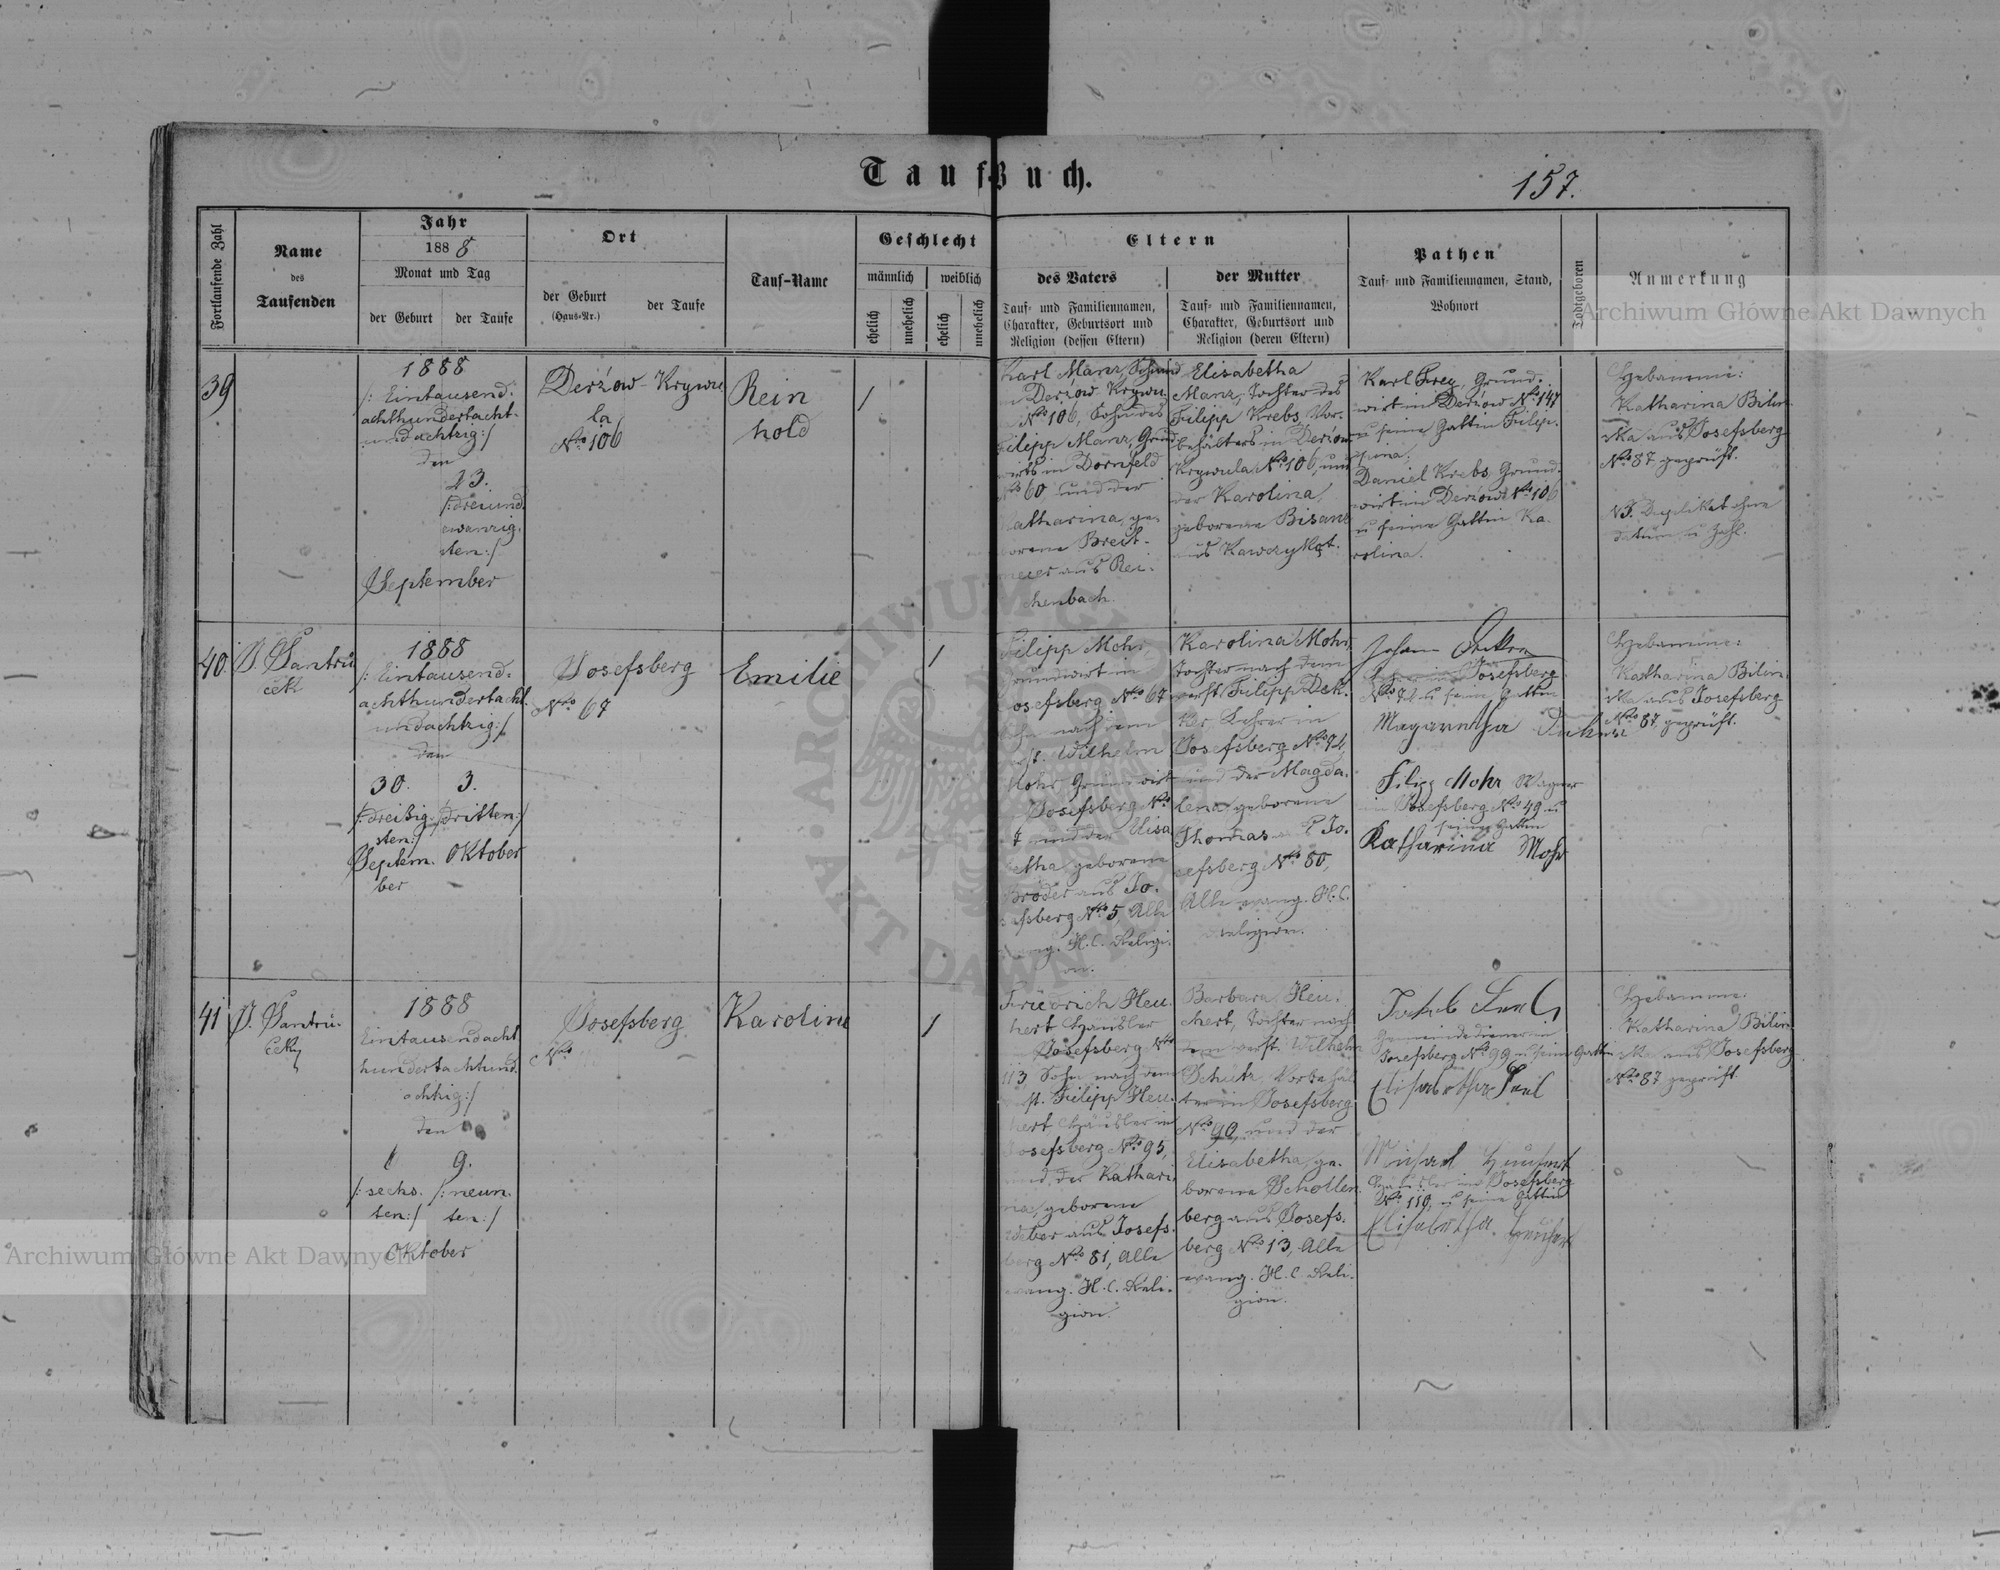 Tauf-Buch.
157.
Fortlaufende Zahl
Name
des
Taufenden
Jahr
1888
Monat und Tag
der Geburt
der Taufe
Ort
der Geburt
(Haus-Nr.)
der Taufe
Tauf-Name
Geschlecht
männlich
weiblich
ehelich
unehelich
ehelich
unehelich
Eltern
des Vaters
Tauf- und Familiennamen,
Charakter, Geburtsort und
Religion (dessen Eltern)
der Mutter
Tauf- und Familiennamen,
Charakter, Geburtsort und
Religion (deren Eltern)
Pathen
Tauf- und Familiennamen, Stand,
Wohnort
Todtgeboren
Anmerkung
39
1888
/: Eintausend-
achthundertacht-
undachtzig:/
den
23.
/:dreiund
zwanzig-
sten:/
September
Derżow-Krywu
la
No 106
Rein
hold
1
Karl Manz,
in Derżow Krywu
No 106, Sohn des
Filipp Manz, Grund
wirts in Dornfeld
No 60, und der
Katharina, ge-
borene Breit-
meier aus Rei-
chenbach.
Elisabetha
Manz, Tochter des
Filipp Krebs, Vor-
behälters in Derżow
Krywula No 106, und
der Karolina,
geborene Bisanz
aus
Karl Frey, Grund-
wirt in Derżow No 147
u seine Gattin Filip-
pina.
Daniel Krebs, Grund-
wirt in Derżow No 106
u seine Gattin Ka-
rolina.
Hebamme:
Katharina Bilin
ska aus Josefsberg
No 87 geprüft.
NB. Duplikat ohne
Datum u Zahl.
40
1888
/: Eintausend-
achthundertacht-
undachtzig:/
den
30. 3.
/:dreißig- /:dritten:/
sten:/
Septem- Oktober
ber
Josefsberg
No 67
Emilie
1
Filipp Mohr,
Grundwirt in
Josefsberg No 67
Sohn nach dem
verst. Wilhelm
Mohr, Grundwirt
Josefsberg No
und der Elisa
betha, geborene
Bröder aus Jo-
sefsberg No 5, Alle
evang. H.C. Religi-
on.
Karolina Mohr,
Tochter nach dem
verst. Filipp Dek-
ker Lehrer in
Josefsberg No
und der Magda-
lena, geborene
Thomas Jo-
sefsberg No 80,
Alle evang. H.C.
Religion.
Johann
Josefsberg
No u seine Gattin
Filipp Mohr Wagner
in Josefsberg No 49 u
seine Gattin
Katharina Mohr
Hebamme:
Katharina Bilin-
ska aus Josefsberg
No 87 geprüft.
41
1888
Eintausendacht
hundertachtund
achtzig:/
den
9.
/:sechs- /:neun-
ten:/ ten:/
Oktober
Josefsberg
No
Karoline
1
Friedrich Heu-
chert Häusler
Josefsberg No
113 Sohn nach dem
verst. Filipp Heu-
chert Häusler in
Josefsberg No 95,
und der Kathari-
na, geborene
Weber aus Josefs-
berg No 81, Alle
evang. H.C. Reli-
gion.
Barbara Heu-
chert, Tochter nach
dem verst. Wilhelm
Schütz, Vorbehäl-
ter in Josefsberg
No 90, und der
Elisabetha, ge-
borene Schollen-
berg aus Josefs-
berg No 13, Alle
evang. H.C. Reli-
gion.
Jakob
Gemeindediener in
Josefsberg No 99 u seine Gattin
Elisabetha
Michael Heuchert
Häusler in Josefsberg
No 110, u seine Gattin
Elisabetha Heuchert
Hebamme:
Katharina Bilin
ska aus Josefsberg
No 87 geprüft.
Archiwum Główne Akt Dawnych
Archiwum Główne Akt Dawnych